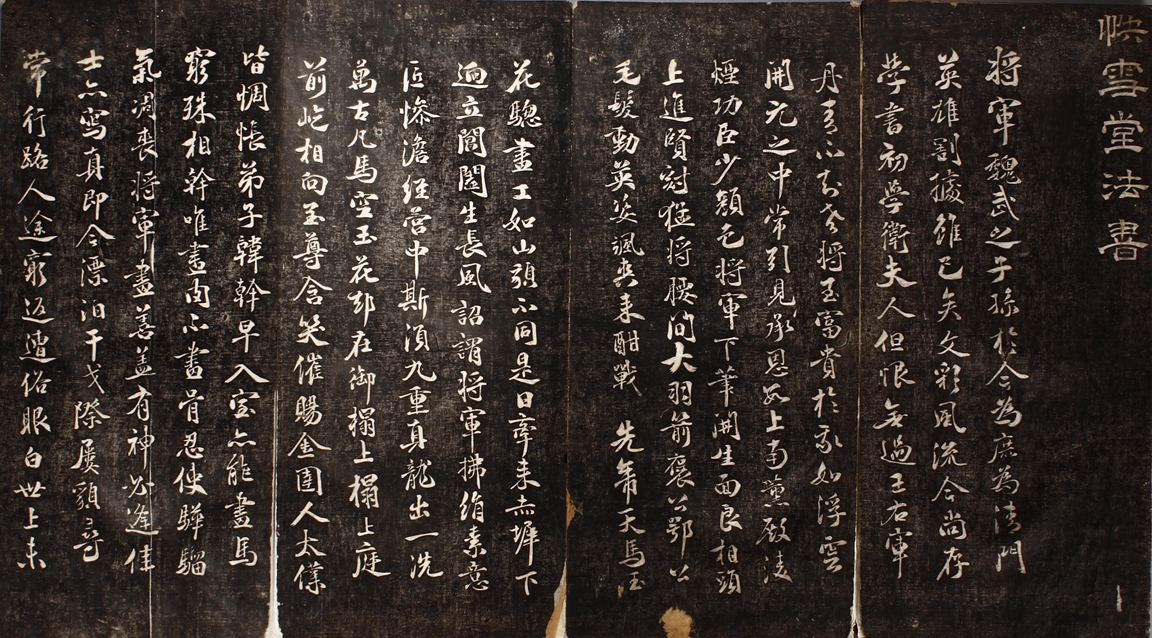 快雪堂法書
将軍魏武之子孫於今為庶為清門
英雄割據雖已矣文彩風流今尚存
學書初學衛夫人但恨無過王右軍
丹青不知老將至富貴於我如浮雲
開元之中常引見承恩數上南薰殿凌
煙功臣少顏色将軍下筆開生面良相頭
上進賢冠猛将腰間大羽箭褒公鄂公
毛髮動英姿颯爽来酣戰 先帝天馬玉
花驄畫工如山貌不同是日牽来赤墀下
迥立閶闔生長風詔謂将軍拂絹素意
匠慘澹經營中斯須九重真龍出一洗
萬古凡馬空玉花却在御榻上榻上庭
前屹相向至尊含笑催賜金圉人太僕
皆惆悵弟子韓幹早入室亦能畫馬
窮殊相幹唯畫肉不畫骨忍使驊騮
氣凋喪将軍畫善蓋有神必逢佳
士亦寫真即今漂泊干戈際屢貌尋
常行路人途窮返遭俗眼白世上未